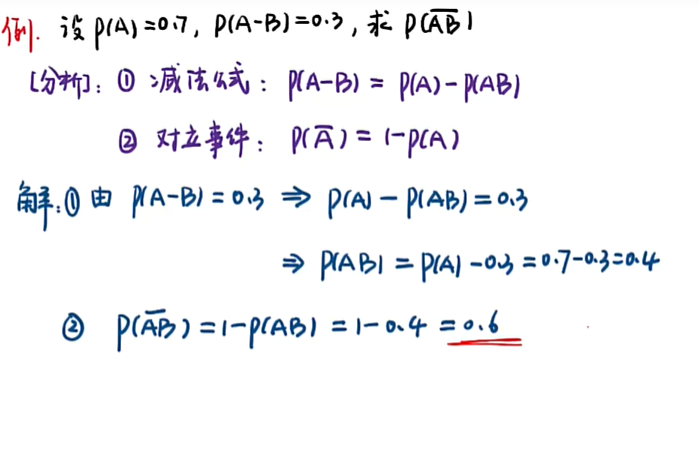 例. 设 P(A)=0.7, P(A-B)=0.3, 求 P(A̅B̅)
[分析]: ① 减法公式: P(A-B) = P(A)-P(AB)
② 对立事件: P(A̅) = 1-P(A)
解:① 由 P(A-B)=0.3 ⇒ P(A)-P(AB)=0.3
⇒ P(AB)=P(A)-0.3=0.7-0.3=0.4
② P(A̅B̅)=1-P(AB)=1-0.4=0.6